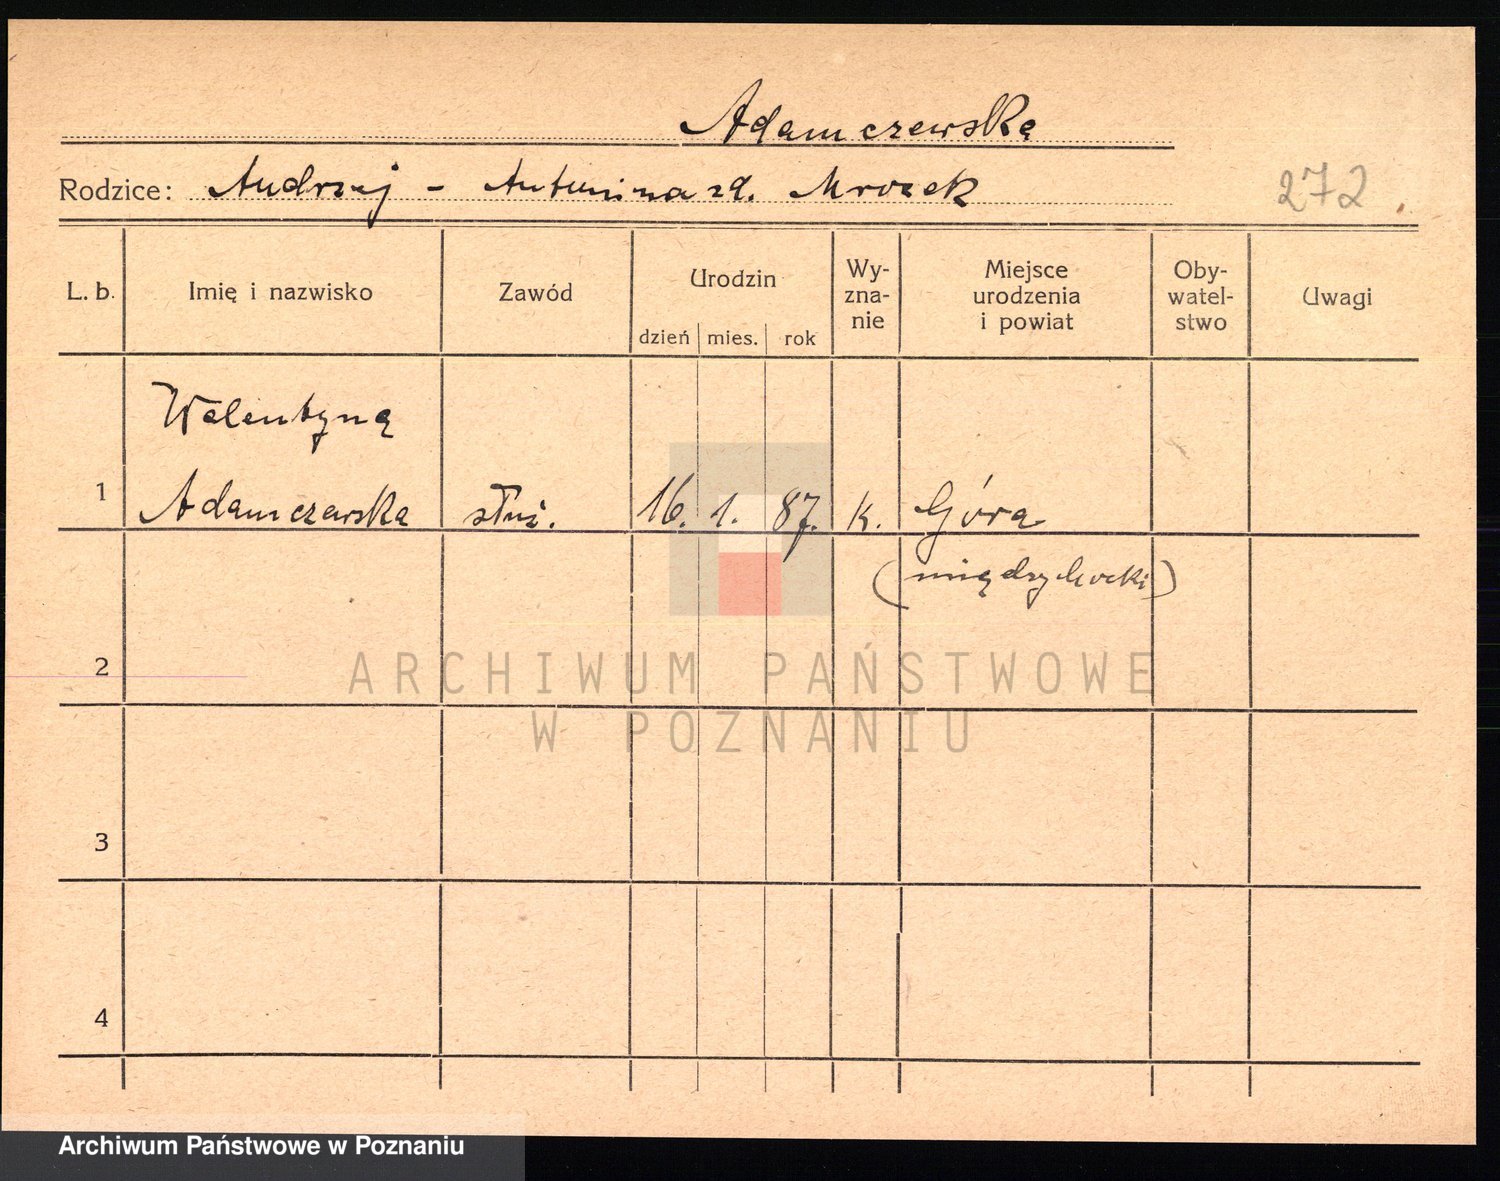 Adamczewska
Rodzice: Andrzej - Antonina zd. Mrozek
272
L. b. Imię i nazwisko Zawód Urodzin dzień mies. rok Wy-zna-nie Miejsce urodzenia i powiat Oby-watel-stwo Uwagi
Walentyna
1 Adamczewska służ. 16. 1. 87. k. Góra
(międzychocki)
2
ARCHIWUM PAŃSTWOWE
W POZNANIU
3
4
Archiwum Państwowe w Poznaniu